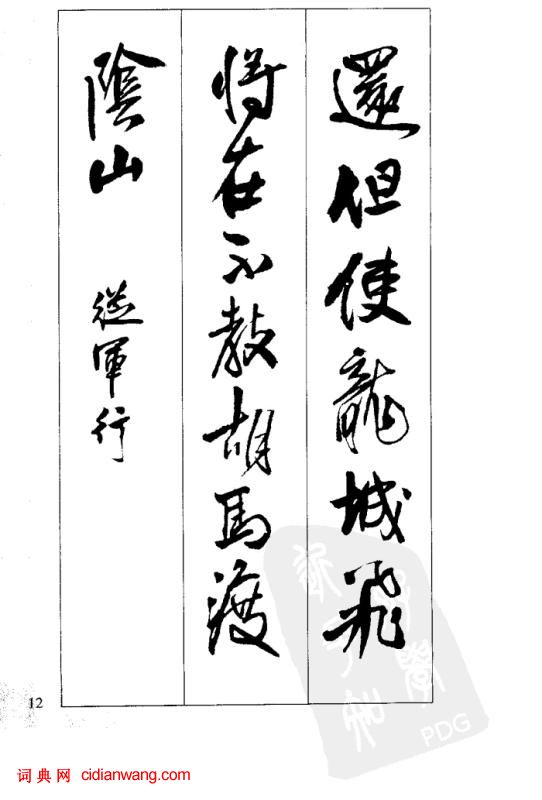 還但使龍城飛
將在不教胡馬渡
陰山 從軍行
12
PDG
词典网 cidianwang.com